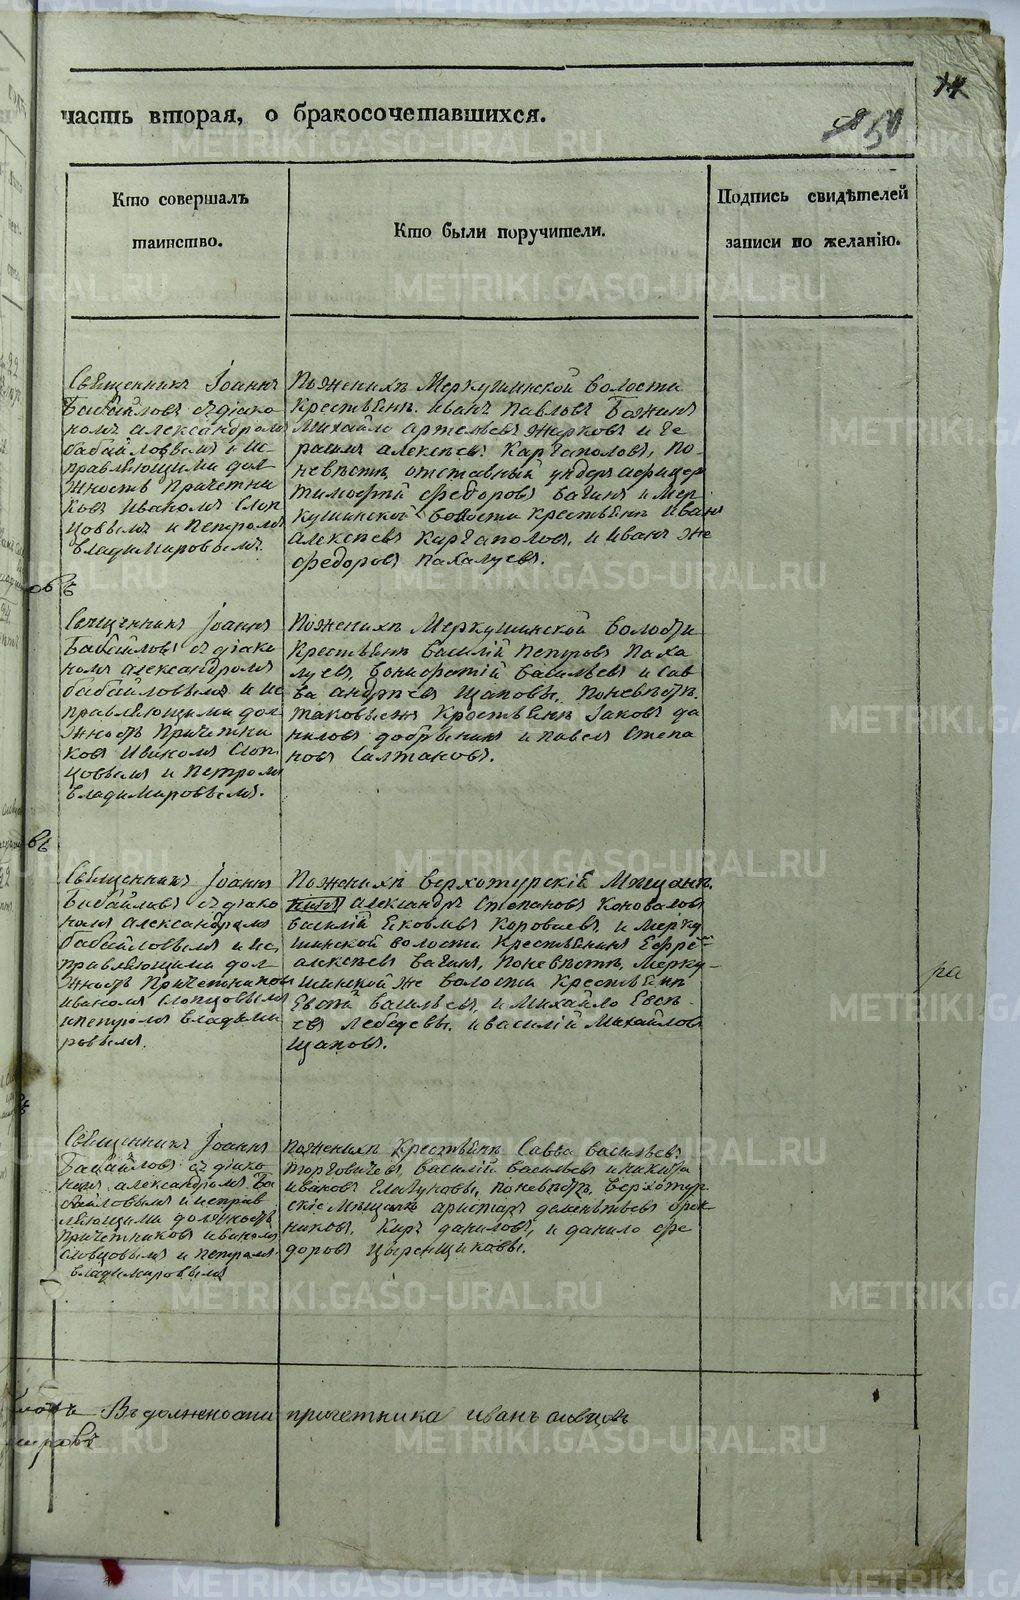 часть вторая, о бракосочетавшихся.
50
Кто совершалъ
таинство.
Кто были поручители.
Подпись свидѣтелей
записи по желанію.
Священникъ Іоаннъ
Бабайловъ съ діако
номъ александромъ
бабайловымъ и ис
правляющими дол
жность Причетни
ковъ Иваномъ Слоп
цовымъ и Петромъ
владимировымъ.
Поженихѣ Меркушинской волости
Крестьянъ. иванъ Павловъ Бажинъ
Михайло артемьевъ Жерковъ и Ге
расим алексѣевъ Каргаполовъ, По
невѣстѣ, отставный ундеръ афицеръ
тимофей федоровъ вагинъ и Мер
кушинской волости крестьянъ Иванъ
алексѣевъ Каргаполовъ, и Иванъ же
федоровъ Пахалуевъ.
Священникъ Іоаннъ
Бабайловъ съ діако
номъ александромъ
бабайловымъ и ис
правляющими дол
жность Причетни
ковъ Иваномъ Слоп
цовымъ и Петромъ
владимировымъ.
Поженихѣ Меркушинской волости
Крестьянъ василій Петровъ Паха
луевъ, вонифатій васильевъ и Сав
ва андреевъ Щаповы, Поневѣстѣ,
таковыежъ Крестьянъ Іаковъ да
ниловъ добрынинъ и Павелъ Степа
новъ Салтановъ.
Священникъ Іоаннъ
Бабайловъ съ діако
номъ александромъ
бабайловымъ и ис
правляющими дол
жность Причетниковъ
иваномъ слопцовымъ
ипетромъ владими
ровымъ.
Поженихѣ верхотурскій Мещанъ
александръ Степановъ Коноваловъ
василій Яковлевъ Короваевъ, и Мерку
шинской волости Крестьянинъ
алексѣевъ вагинъ, Поневѣстѣ, Мерку
шинской же волости Крестьянъ
васильевъ, и Михайло Евсѣ
евъ Лебедевы, ивасилій Михайловъ
Щаповъ.
Священникъ Іоаннъ
Бабайловъ съ діако
номъ александромъ Ба
байловымъ и исправ
ляющими должность
причетниковъ иваномъ
словцовымъ и петромъ
владимировымъ
Поженихѣ Крестьянъ Савва васильевъ
торговичевъ, василій васильевъ иникита
ивановъ Глазуновы, поневѣстѣ, верхотур
скіе Мещанъ
никовъ, Киръ даниловъ, и данило фе
доровъ
Въ должности причетника иванъ словцовъ